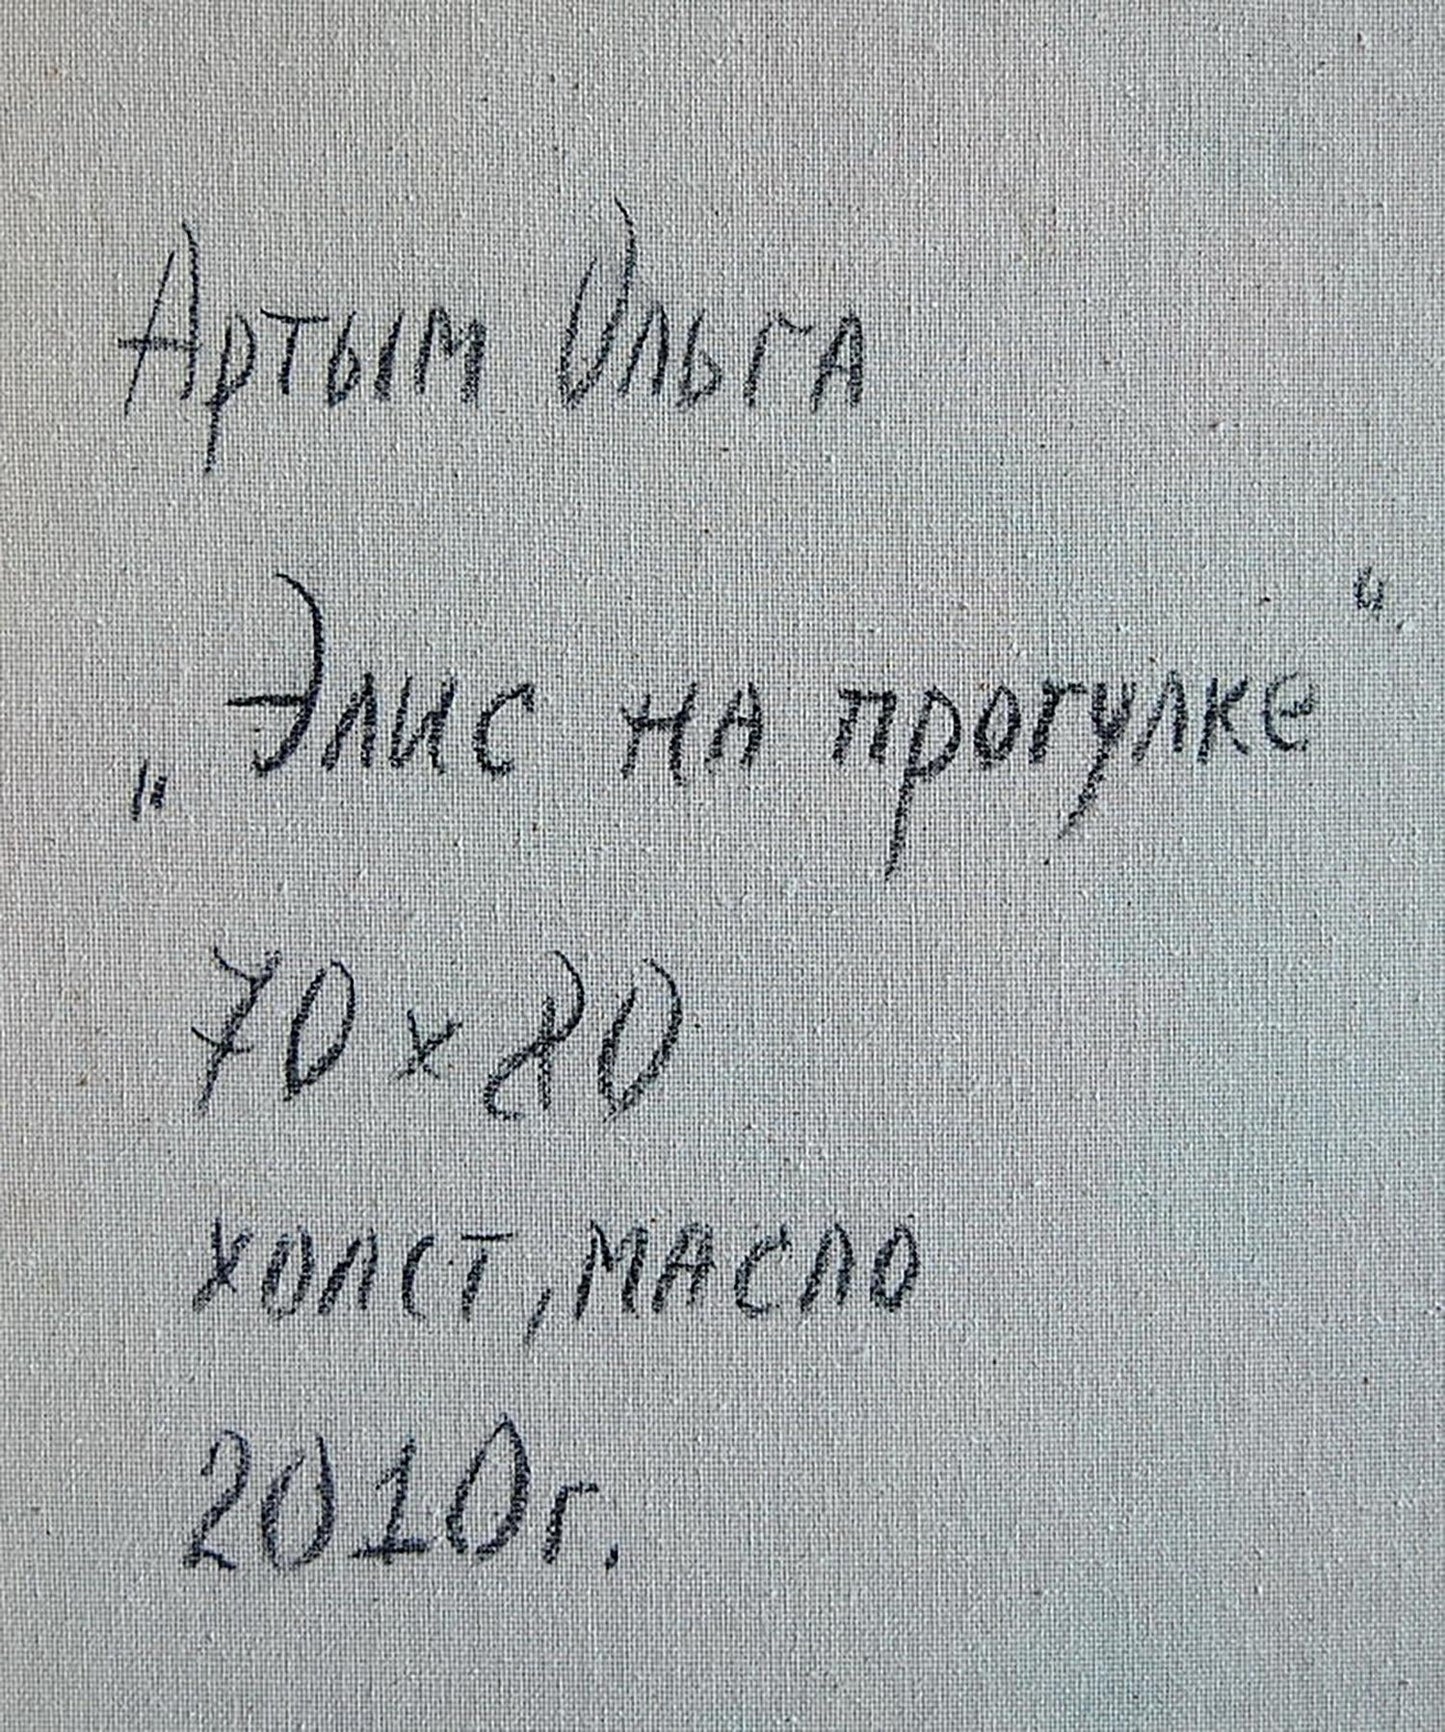 Артым Ольга
„Элис на прогулке“.
70 х 80
холст, масло
2010г.